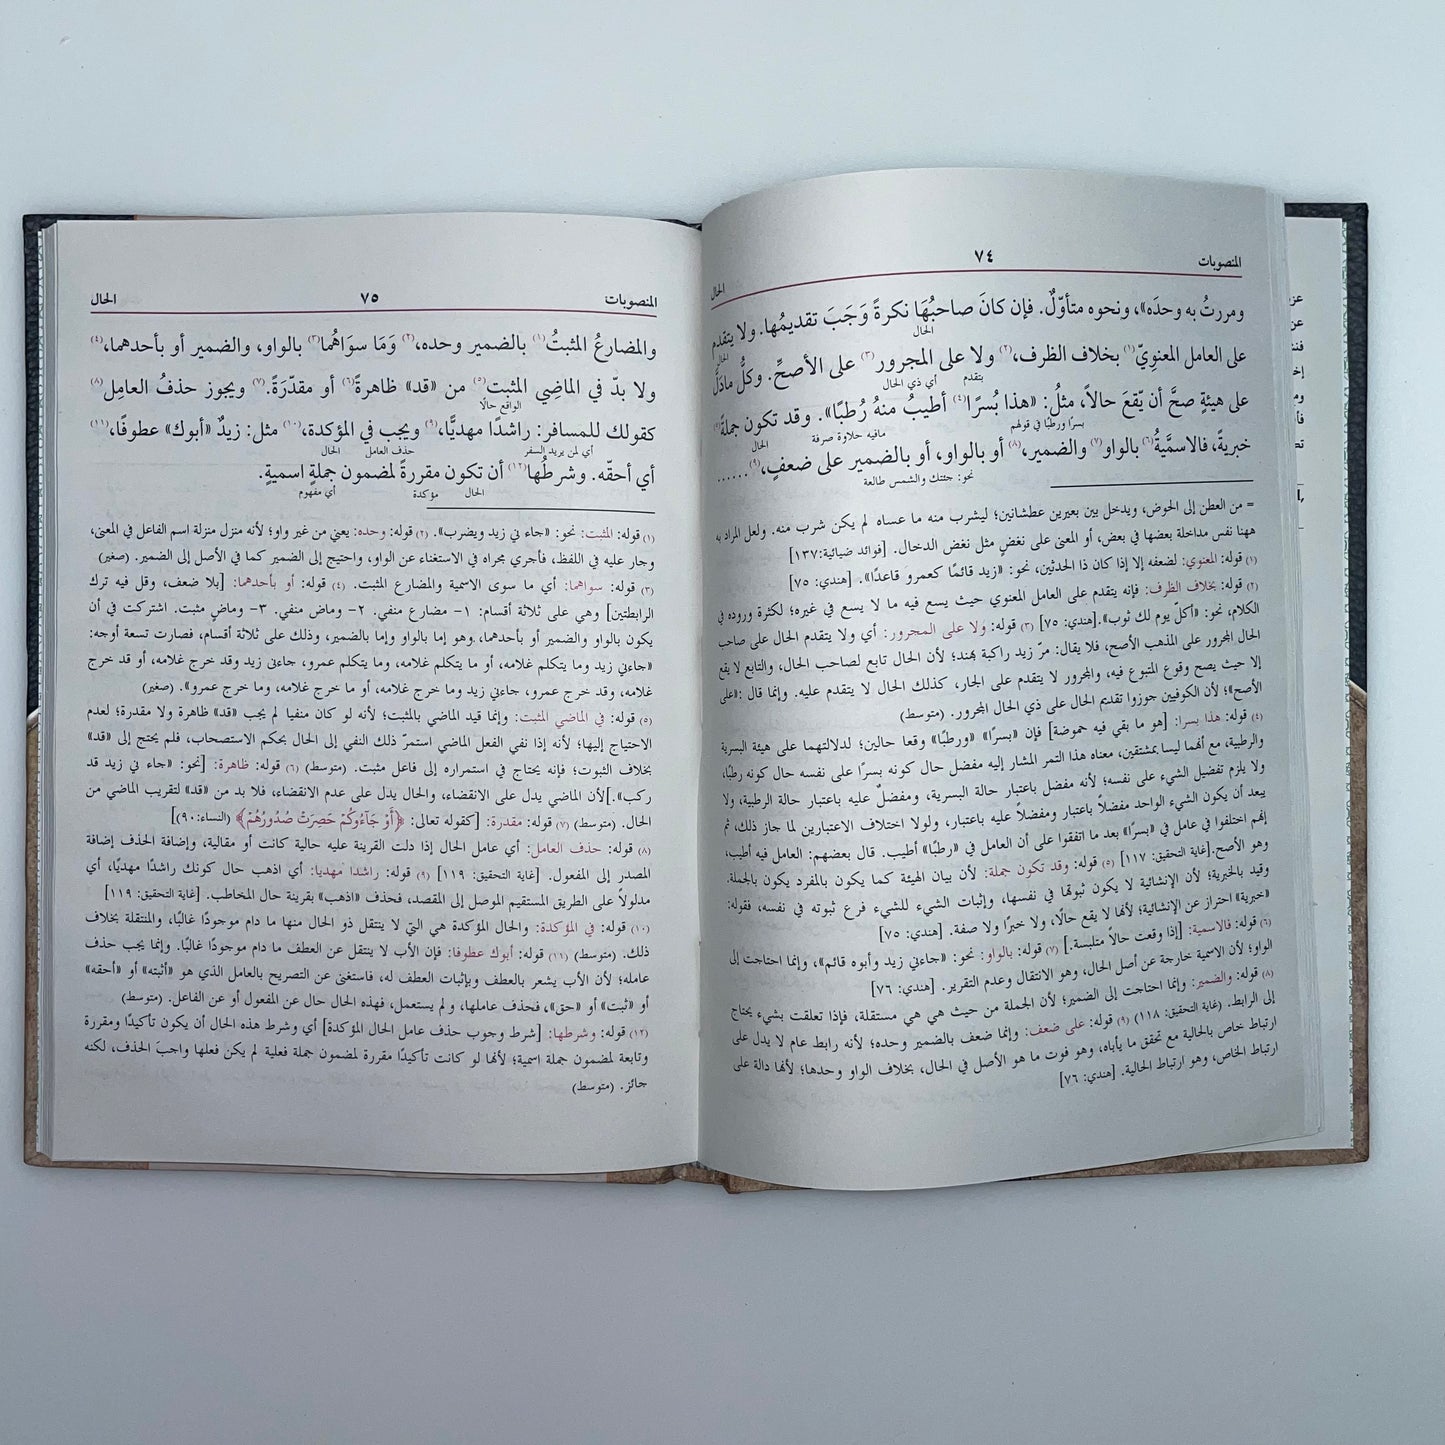 المنصوبات ٧٤ الحال
ومررتُ به وحدَه»، ونحوه متأوّلٌ. فإن كانَ صاحبُهَا نكرةً وَجَبَ تقديمُها. ولا يتقدم
الحال
على العامل المعنوِيّ(١) بخلاف الظرف،(٢) ولا على المجرور(٣) على الأصحِّ. وكلُّ مادَلَّ
يتقدم أي ذي الحال الحال
على هيئةٍ صحَّ أن يّقعَ حالاً، مثلُ: «هذا بُسرًا(٤) أطيبُ منهُ رُطبًا». وقد تكون جملةً(٥)
بسرًا ورطبًا في قولهم مافيه حلاوة صرفة الحال
خبريةً، فالاسميَّةُ(٦) بالواو(٧) والضمير،(٨) أو بالواو، أو بالضمير على ضعفٍ،(٩) ......
نحو: جئتك والشمس طالعة
= من العطن إلى الحوض، ويدخل بين بعيرين عطشانين؛ ليشرب منه ما عساه لم يكن شرب منه. ولعل المراد به
ههنا نفس مداخلة بعضها في بعض، أو المعنى على نغصٍ مثل نغض الدخال. [فوائد ضيائية:١٣٧]
(١) قوله: المعنوي: لضعفه إلا إذا كان ذا الحدثين، نحو: «زيد قائمًا كعمرو قاعدًا». [هندي: ٧٥]
(٢) قوله: بخلاف الظرف: فإنه يتقدم على العامل المعنوي حيث يسع فيه ما لا يسع في غيره؛ لكثرة وروده في
الكلام، نحو: «أكلّ يوم لك ثوب».[هندي: ٧٥] (٣) قوله: ولا على المجرور: أي ولا يتقدم الحال على صاحب
الحال المجرور على المذهب الأصح، فلا يقال: مرّ زيد راكبة بهند؛ لأن الحال تابع لصاحب الحال، والتابع لا يقع
إلا حيث يصح وقوع المتبوع فيه، والمجرور لا يتقدم على الجار، كذلك الحال لا يتقدم عليه. وإنما قال :«على
الأصح»؛ لأن الكوفيين جوزوا تقديم الحال على ذي الحال المجرور. (متوسط)
(٤) قوله: هذا بسرا: [هو ما بقي فيه حموضة] فإن «بسرًا» «ورطبًا» وقعا حالين؛ لدلالتهما على هيئة البسرية
والرطبية، مع أنهما ليسا بمشتقين، معناه هذا التمر المشار إليه مفضل حال كونه بسرًا على نفسه حال كونه رطبًا،
ولا يلزم تفضيل الشيء على نفسه؛ لأنه مفضل باعتبار حالة البسرية، ومفضلٌ عليه باعتبار حالة الرطبية، ولا
يبعد أن يكون الشيء الواحد مفضلاً باعتبار ومفضلا عليه باعتبار، ولولا اختلاف الاعتبارين لما جاز ذلك، ثم
إنهم اختلفوا في عامل في «بسرًا» بعد ما اتفقوا على أن العامل في «رطبًا» أطيب. قال بعضهم: العامل فيه أطيب،
وهو الأصح.[غاية التحقيق: ١١٧] (٥) قوله: وقد تكون جملة: لأن بيان الهيئة كما يكون بالمفرد يكون بالجملة.
وقيد بالخبرية؛ لأن الإنشائية لا يكون ثبوتها في نفسها، وإثبات الشيء للشيء فرع ثبوته في نفسه، فقوله:
«خبرية» احتراز عن الإنشائية؛ لأنها لا يقع حالًا، ولا خبرًا ولا صفة. [هندي: ٧٥]
(٦) قوله: فالاسمية: [إذا وقعت حالاً متلبسة.] (٧) قوله: بالواو: نحو: «جاءني زيد وأبوه قائم»، وإنما احتاجت إلى
الواو؛ لأن الاسمية خارجة عن أصل الحال، وهو الانتقال وعدم التقرير. [هندي: ٧٦]
(٨) قوله: والضمير: وإنما احتاجت إلى الضمير؛ لأن الجملة من حيث هي هي مستقلة، فإذا تعلقت بشيء يحتاج
إلى الرابط. (غاية التحقيق: ١١٨) (٩) قوله: على ضعف: وإنما ضعف بالضمير وحده؛ لأنه رابط عام لا يدل على
ارتباط خاص بالحالية مع تحقق ما يأباه، وهو فوت ما هو الأصل في الحال، بخلاف الواو وحدها؛ لأنها دالة على
ارتباط الخاص، وهو ارتباط الحالية. [هندي: ٧٦]
المنصوبات ٧٥ الحال
والمضارعُ المثبتُ(١) بالضمير وحده،(٢) وَمَا سوَاهُما(٣) بالواو، والضمير أو بأحدهما،(٤)
ولا بدّ في الماضِي المثبت(٥) من «قد» ظاهرةً(٦) أو مقدّرَة.(٧) ويجوز حذفُ العامِل(٨)
الواقع حالًا
كقولك للمسافر: راشدًا مهديًّا،(٩) ويجب في المؤكدة،(١٠) مثل: زيدٌ «أبوك» عطوفًا،(١١)
أي لمن يريد السفر حذف العامل الحال
أي أحقّه. وشرطُها(١٢) أن تكون مقررةً لمضمون جملةٍ اسميةٍ.
الحال مؤكدة أي مفهوم
(١) قوله: المثبت: نحو: «جاء ني زيد ويضرب». (٢) قوله: وحده: يعني من غير واو؛ لأنه منزل منزلة اسم الفاعل في المعنى،
وجار عليه في اللفظ، فأجري مجراه في الاستغناء عن الواو، واحتيج إلى الضمير كما في الأصل إلى الضمير. (صغير)
(٣) قوله: سواهما: أي ما سوى الاسمية والمضارع المثبت. (٤) قوله: أو بأحدهما: [بلا ضعف، وقل فيه ترك
الرابطتين] وهي على ثلاثة أقسام: ١- مضارع منفي. ٢- وماض منفي. ٣- وماضٍ مثبت. اشتركت في أن
يكون بالواو والضمير أو بأحدهما،وهو إما بالواو وإما بالضمير، وذلك على ثلاثة أقسام، فصارت تسعة أوجه:
«جاءني زيد وما يتكلم غلامه، أو ما يتكلم غلامه، وما يتكلم عمرو، جاءني زيد وقد خرج غلامه، أو قد خرج
غلامه، وقد خرج عمرو، جاءني زيد وما خرج غلامه، أو ما خرج غلامه، وما خرج عمرو». (صغير)
(٥) قوله: في الماضي المثبت: وإنما قيد الماضي بالمثبت؛ لأنه لو كان منفيا لم يجب «قد» ظاهرة ولا مقدرة؛ لعدم
الاحتياج إليها؛ لأنه إذا نفي الفعل الماضي استمرّ ذلك النفي إلى الحال بحكم الاستصحاب، فلم يحتج إلى «قد»
بخلاف الثبوت؛ فإنه يحتاج في استمراره إلى فاعل مثبت. (متوسط) (٦) قوله: ظاهرة: [نحو: «جاء ني زيد قد
ركب».]لأن الماضي يدل على الانقضاء، والحال يدل على عدم الانقضاء، فلا بد من «قد» لتقريب الماضي من
الحال. (متوسط) (٧) قوله: مقدرة: [كقوله تعالى: ﴿أَوْ جَآءُوكُمْ حَصِرَتْ صُدُورُهُمْ﴾ (النساء:٩٠)]
(٨) قوله: حذف العامل: أي عامل الحال إذا دلت القرينة عليه حالية كانت أو مقالية، وإضافة الحذف إضافة
المصدر إلى المفعول. [غاية التحقيق: ١١٩] (٩) قوله: راشدا مهديا: أي اذهب حال كونك راشدًا مهديًا، أي
مدلولاً على الطريق المستقيم الموصل إلى المقصد، فحذف «اذهب» بقرينة حال المخاطب. [غاية التحقيق: ١١٩]
(١٠) قوله: في المؤكدة: والحال المؤكدة هي التي لا ينتقل ذو الحال منها ما دام موجودًا غالبًا، والمنتقلة بخلاف
ذلك. (متوسط) (١١) قوله: أبوك عطوفا: فإن الأب لا ينتقل عن العطف ما دام موجودًا غالبًا. وإنما يجب حذف
عامله؛ لأن الأب يشعر بالعطف وبإثبات العطف له، فاستغنى عن التصريح بالعامل الذي هو «أثبته» أو «أحقه»
أو «ثبت» أو «حق»، فحذف عاملها، ولم يستعمل، فهذه الحال حال عن المفعول أو عن الفاعل. (متوسط)
(١٢) قوله: وشرطها: [شرط وجوب حذف عامل الحال المؤكدة] أي وشرط هذه الحال أن يكون تأكيدًا ومقررة
وتابعة لمضمون جملة اسمية؛ لأنها لو كانت تأكيدًا مقررة لمضمون جملة فعلية لم يكن فعلها واجبَ الحذف، لكنه
جائز. (متوسط)